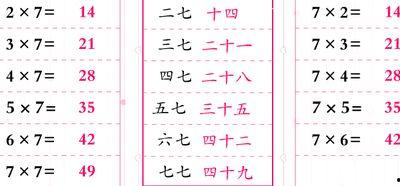 2×7= 14 二七 十四 7×2= 14
3×7= 21 三七 二十一 7×3= 21
4×7= 28 四七 二十八 7×4= 28
5×7= 35 五七 三十五 7×5= 35
6×7= 42 六七 四十二 7×6= 42
7×7= 49 七七 四十九